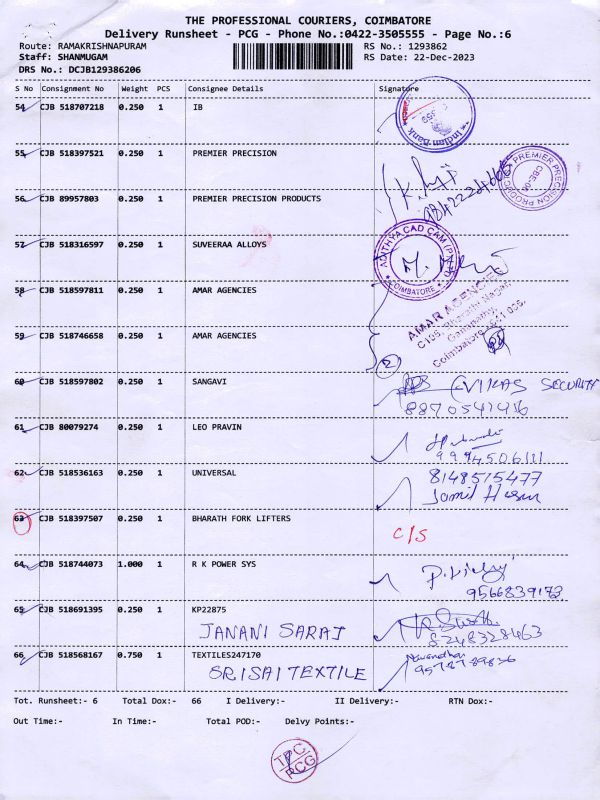 THE PROFESSIONAL COURIERS, COIMBATORE
Delivery Runsheet - PCG - Phone No.:0422-3505555 - Page No.:6
Route: RAMAKRISHNAPURAM
Staff: SHANMUGAM
DRS No.: DCJB129386206
RS No.: 1293862
RS Date: 22-Dec-2023
S No Consignment No Weight PCS Consignee Details Signature
54 CJB 518707218 0.250 1 IB
Indian Bank
55 CJB 518397521 0.250 1 PREMIER PRECISION
PREMIER PRECISION PRODUCTS
56 CJB 89957803 0.250 1 PREMIER PRECISION PRODUCTS
57 CJB 518316597 0.250 1 SUVEERAA ALLOYS
ADITHYA CAD CAM (P)
COIMBATORE
58 CJB 518597811 0.250 1 AMAR AGENCIES
AMAR AGENCIES
Coimbatore
59 CJB 518746658 0.250 1 AMAR AGENCIES
2
60 CJB 518597802 0.250 1 SANGAVI
VIKAS SECURITY
8870541416
61 CJB 80079274 0.250 1 LEO PRAVIN
62 CJB 518536163 0.250 1 UNIVERSAL
8148515477
63 CJB 518397507 0.250 1 BHARATH FORK LIFTERS
C/S
64 CJB 518744073 1.000 1 R K POWER SYS
9566839173
65 CJB 518691395 0.250 1 KP22875
JANANI SARAJ
8248328463
66 CJB 518568167 0.750 1 TEXTILES247170
SRI SAI TEXTILE
Tot. Runsheet:- 6 Total Dox:- 66 I Delivery:- II Delivery:- RTN Dox:-
Out Time:- In Time:- Total POD:- Delvy Points:-
TPC
PCG